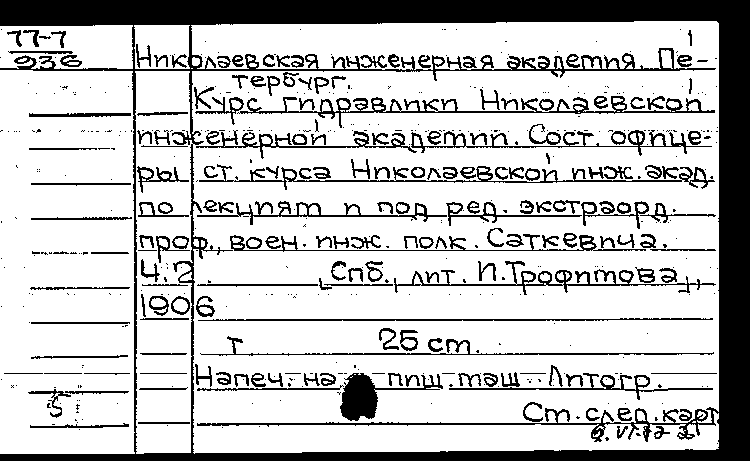 77-7
936
Николаевская инженерная академия. Пе-
тербург.
Курс гидравлики Николаевской
инженерной академии. Сост. офице-
ры ст. курса Николаевской инж. акад.
по лекциям и под ред. экстраорд.
проф., воен. инж. полк. Саткевича.
Ч. 2. [Спб.], лит. И. Трофимова,
1906
т. 25 см.
Напеч. на пиш. маш. Литогр.
5
См. след. карт.